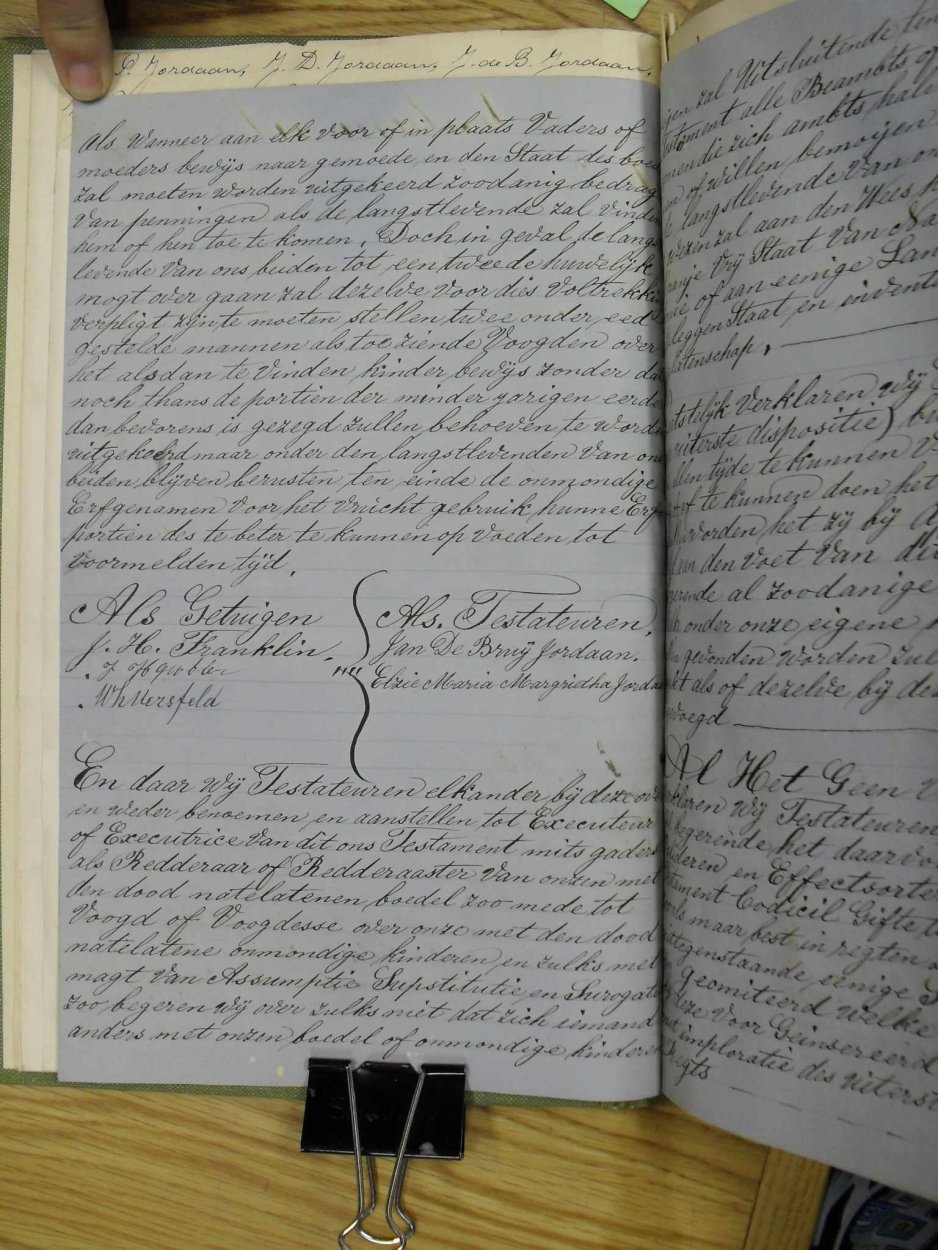 P. Jordaan, J. D. Jordaan, J. de B. Jordaan,
Als wanneer aan elk voor of in plaats Vaders of
moeders bewijs naar gemoede en den Staat des boe
zal moeten worden uitgekeerd zoodanig bedrag
Van penningen als de langstlevende zal vinde
hem of hen toe te komen, Doch in geval de langs
levende Van ons beiden tot een tweede huwelijk
mogt over gaan zal dezelve voor dies voltrekki
verpligt zijn te moeten stellen twee onder eed
gestelde mannen als toeziende Voogden over
het alsdan te vinden kinder bewijs zonder dat
noch thans de portien der minder jarigen eerde
dan bevorens is gezegd zullen behoeven te worde
uitgekeerd maar onder den langstlevenden Van ons
beiden blijven berusten ten einde de onmondige
Erfgenamen Voor het vrucht gebruik hunne Erf
portien des te beter te kunnen op voeden tot
voormelden tijd,
Als Getuigen
J. H. Franklin.
Als. Testateuren,
Jan De Bruÿ Jordaan.
Elzie Maria Margridha Jordaa
En daar Wij Testateuren elkander bij deze over
en weder benoemen en aanstellen tot Executeur
of Executrice Van dit ons Testament mits gader
als Redderaar of Redderaaster Van onzen met
den dood natelatenen boedel zoo mede tot
Voogd of Voogdesse over onze met den dood
natelatene onmondige kinderen en zulks met
magt Van Assumptie Supstitutie en Surogati
zoo begeren wij over zulks niet dat zich iemand
anders met onzen boedel of onmondige kinderen
zal Uitsluitende ten
alle Beambts of
die zich ambts hal
of willen bemoijen
langstlevende Van on
zal aan den Wees
Vrij Staat Van Na
of aan eenige Lan
leggen Staat en invent
latenschap,
Verklaren Wij
uiterste dispositie) be
tijde te kunnen V
te kunnen doen het
worden het zij bij
aan den voet Van di
al zoodanige
onder onze eigene
gevonden worden zul
als of dezelve bij de
voegd
Al Het Geen
Wij Testateuren
begerende het daarvo
en Effectsorte
Codicil Gifte
maar best in regten
tegenstaande eenige
geomiteerd welke
deze voor Geinsereerd
imploratie des uiterst
Regts